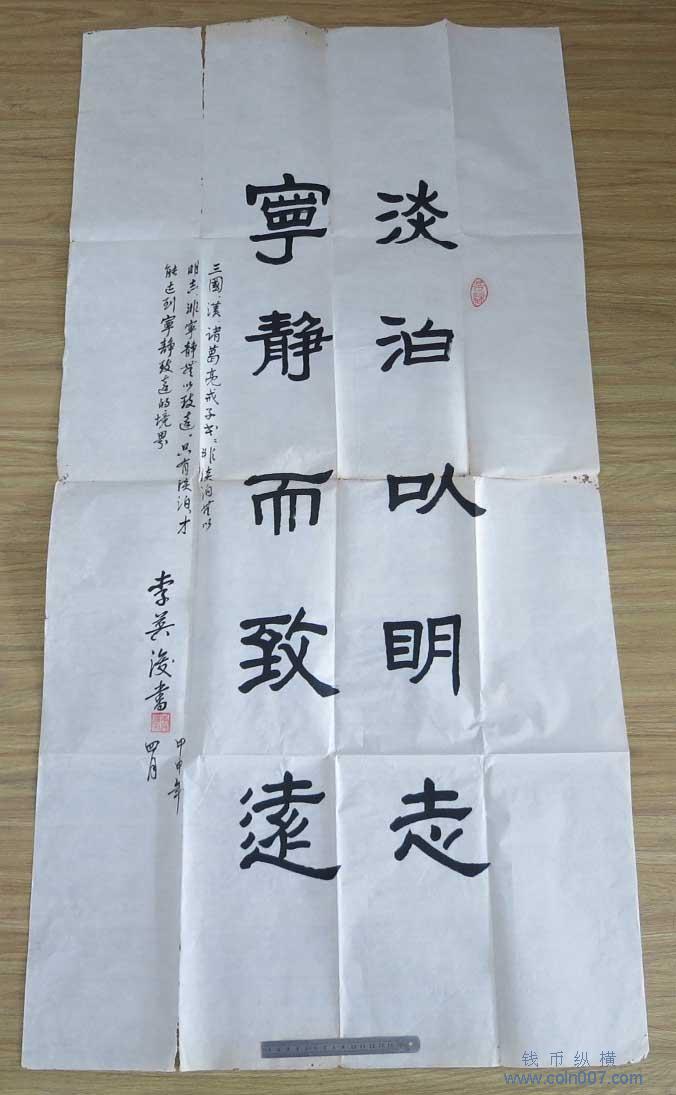 淡泊以明志
寧静而致遠
三國漢諸葛亮戒子书：非淡泊無以
明志，非寧静無以致遠。只有淡泊才
能达到寧静致遠的境界
李英俊書
甲申年
四月
钱币纵横
www.coin007.com